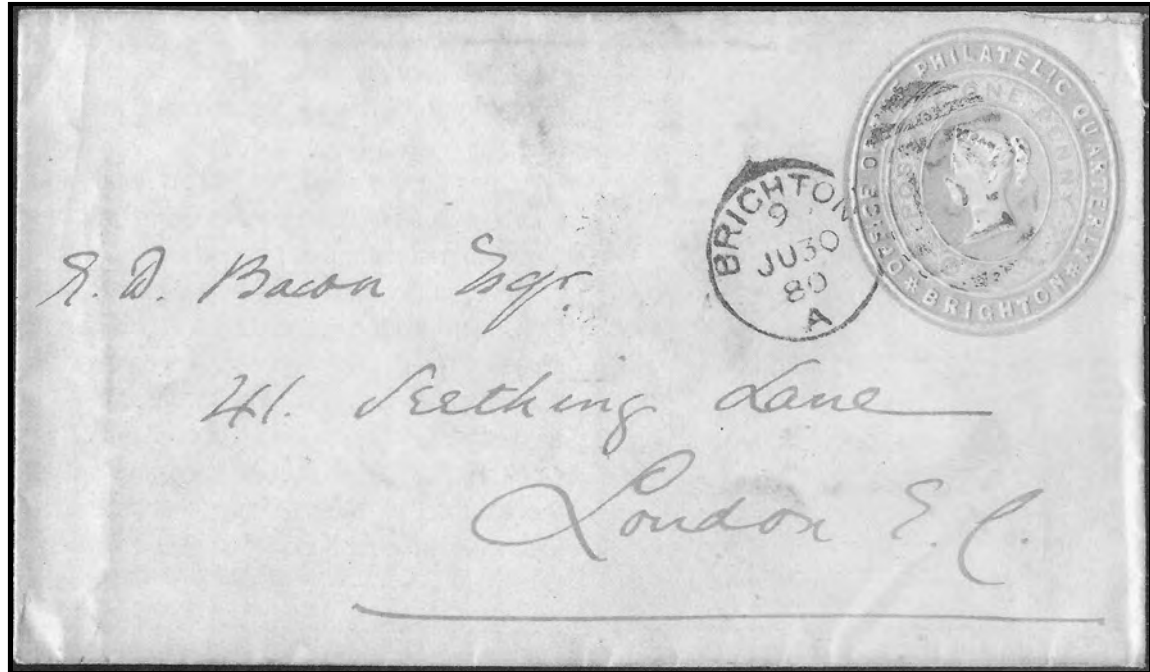 OFFICE OF THE PHILATELIC QUARTERLY
BRIGHTON
ONE PENNY
BRIGHTON
9
JU 30
80
A
E. D. Bacon Esqr.
41. Seething Lane
London E. C.